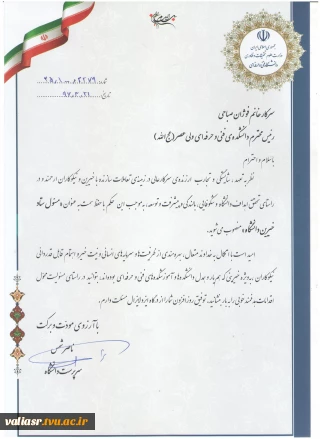 جمهوری اسلامی ایران
وزارت علوم، تحقیقات و فناوری
دانشگاه فنی و حرفه‌ای
تاریخ: ۹۷.۳.۲۱
سرکار خانم فوژان صباحی
رئیس محترم دانشکده‌ی فنی و حرفه‌ای ولی عصر (عج الله)
با سلام و احترام
نظر به تعهد، شایستگی و تجارب ارزنده‌ی سرکارعالی در زمینه‌ی تعاملات سازنده با خیرین و نیکوکاران ارجمند و در
راستای تحقق اهداف دانشگاه و شکوفایی، بالندگی و پیشرفت و توسعه، به موجب این حکم با حفظ سمت به عنوان «مسئول ستاد
خیرین دانشگاه» منصوب می‌شوید.
امید است با اتکال به خداوند متعال، بهره‌مندی از ظرفیت‌ها و سرمایه‌های انسانی و نیت خیر و اهتمام قابل قدردانی
نیکوکاران، به ویژه خیرینی که همیار و همدل دانشکده‌ها و آموزشکده‌های فنی و حرفه‌ای بوده‌اند، بتوانید در راستای مسئولیت محول
اقدامات ثمند خوبی را به بار بنشانید. توفیق روزافزون شما را از درگاه ایزد لایزال مسئلت دارم.
با آرزوی موفقیت و برکت
ناصر شمس
سرپرست دانشگاه
valiasr.tvu.ac.ir